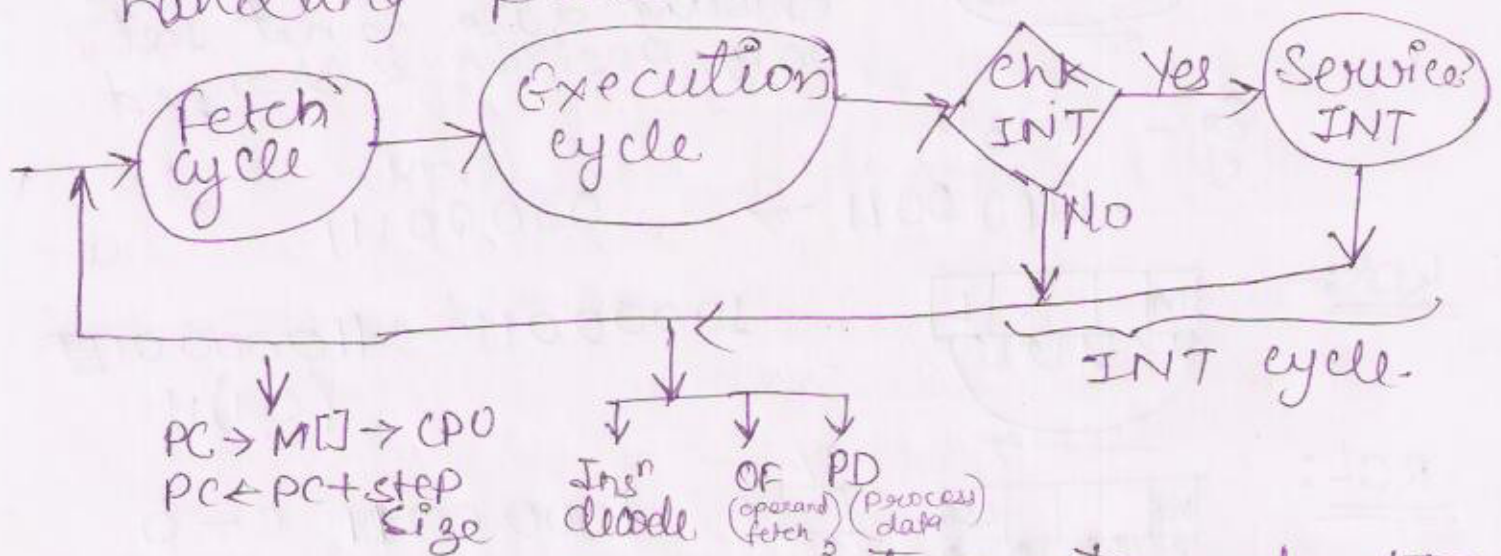 handling
Fetch
cycle
Execution
cycle
Chk
INT
Yes
Service
INT
NO
INT cycle.
PC → M[] → CPU
PC ← PC + step
size
Insⁿ
decode
OF
(operand
fetch)
PD
(process
data)